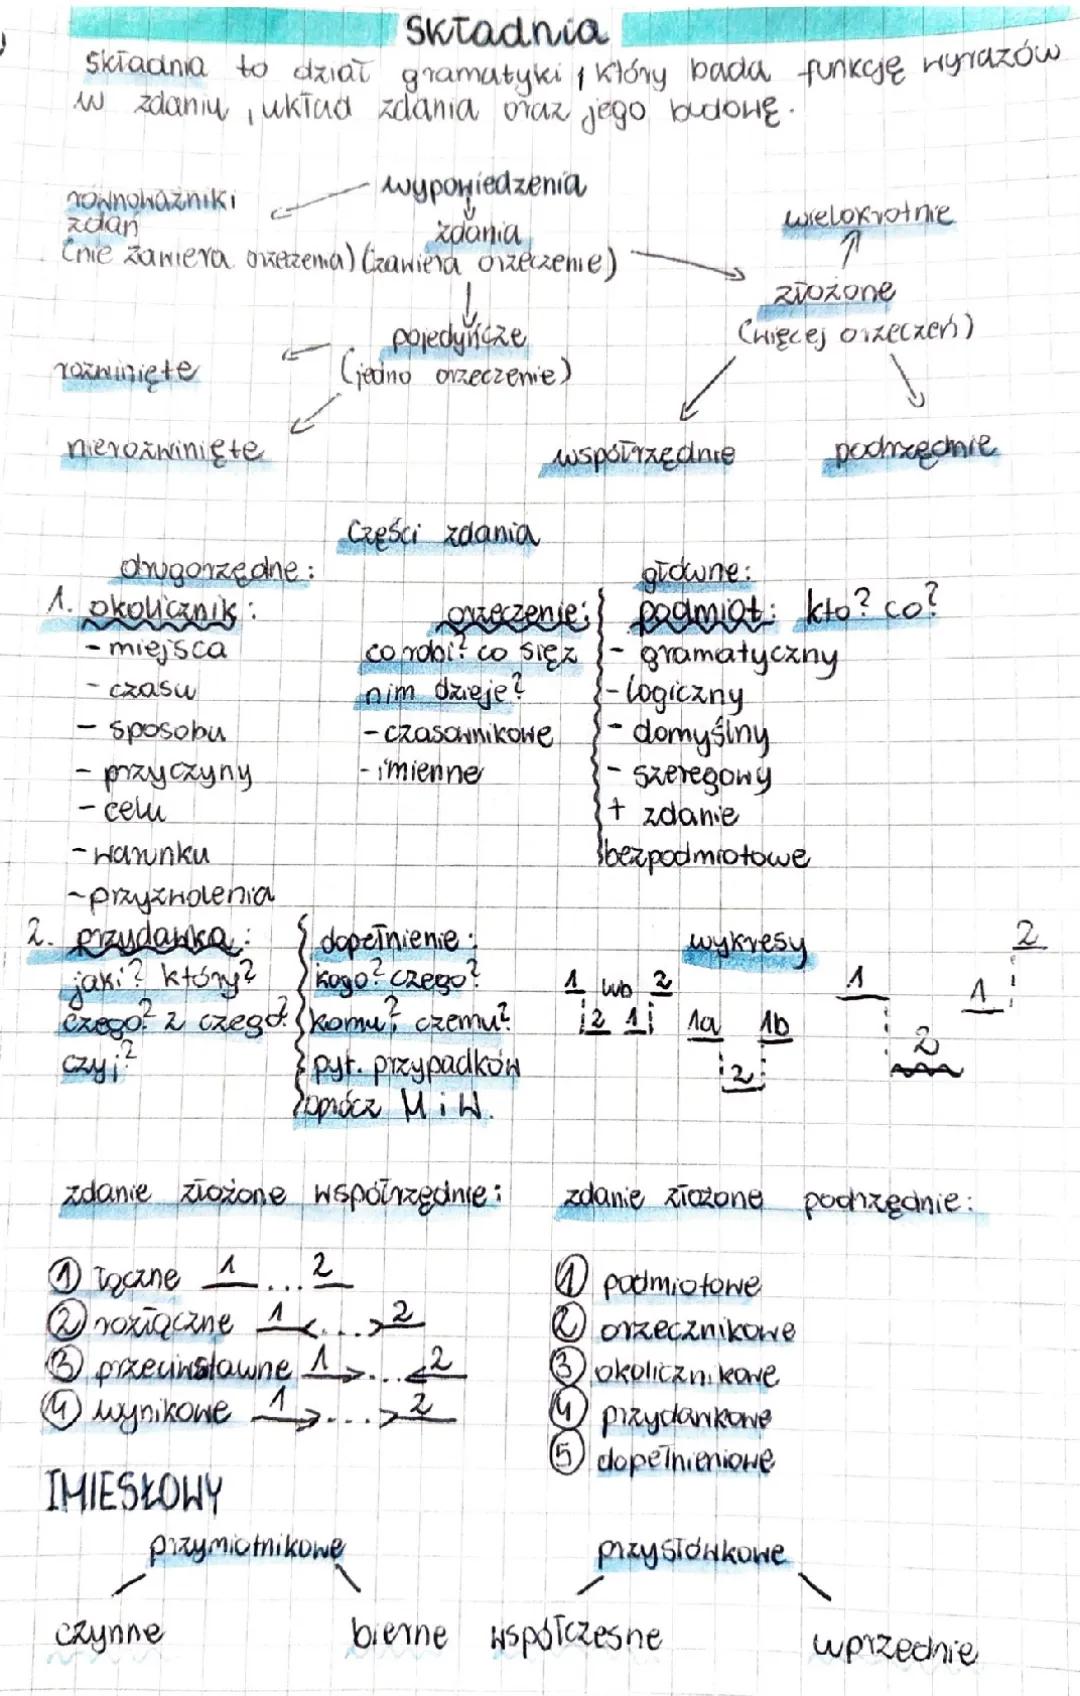 Składnia
Składnia to dział gramatyki, który bada funkcję wyrazów
w zdaniu, układ zdania oraz jego budowę.
wypowiedzenia
równoważniki
zdań
zdania
wielokrotnie
(nie zawiera orzeczenia) (zawiera orzeczenie)
złożone
pojedyńcze
(więcej orzeczeń)
rozwinięte
(jedno orzeczenie)
nierozwinięte
współrzędnie
podrzędnie
Części zdania
drugorzędne:
główne:
1. okolicznik:
orzeczenie:
podmiot: kto? co?
- miejsca
co robi? co się z
- gramatyczny
- czasu
nim dzieje?
- logiczny
- sposobu
- czasownikowe
- domyślny
- przyczyny
- imienne
- szeregowy
- celu
+ zdanie
- warunku
bezpodmiotowe
- przyzwolenia
2. przydawka:
dopełnienie:
wykresy
2
jaki? który?
kogo? czego?
1 lub 2
1
1
czego? z czego?
komu? czemu?
2 1
1a 1b
2
czyj?
pyt. przypadków
2
oprócz M i W.
zdanie złożone współrzędnie:
zdanie złożone podrzędnie:
1 łączne 1 ... 2
1 podmiotowe
2 rozłączne 1 <...> 2
2 orzecznikowe
3 przeciwstawne 1 >...< 2
3 okolicznikowe
4 wynikowe 1 >...> 2
4 przydawkowe
5 dopełnieniowe
IMIESŁOWY
przymiotnikowe
przysłówkowe
czynne
bierne
współczesne
uprzednie